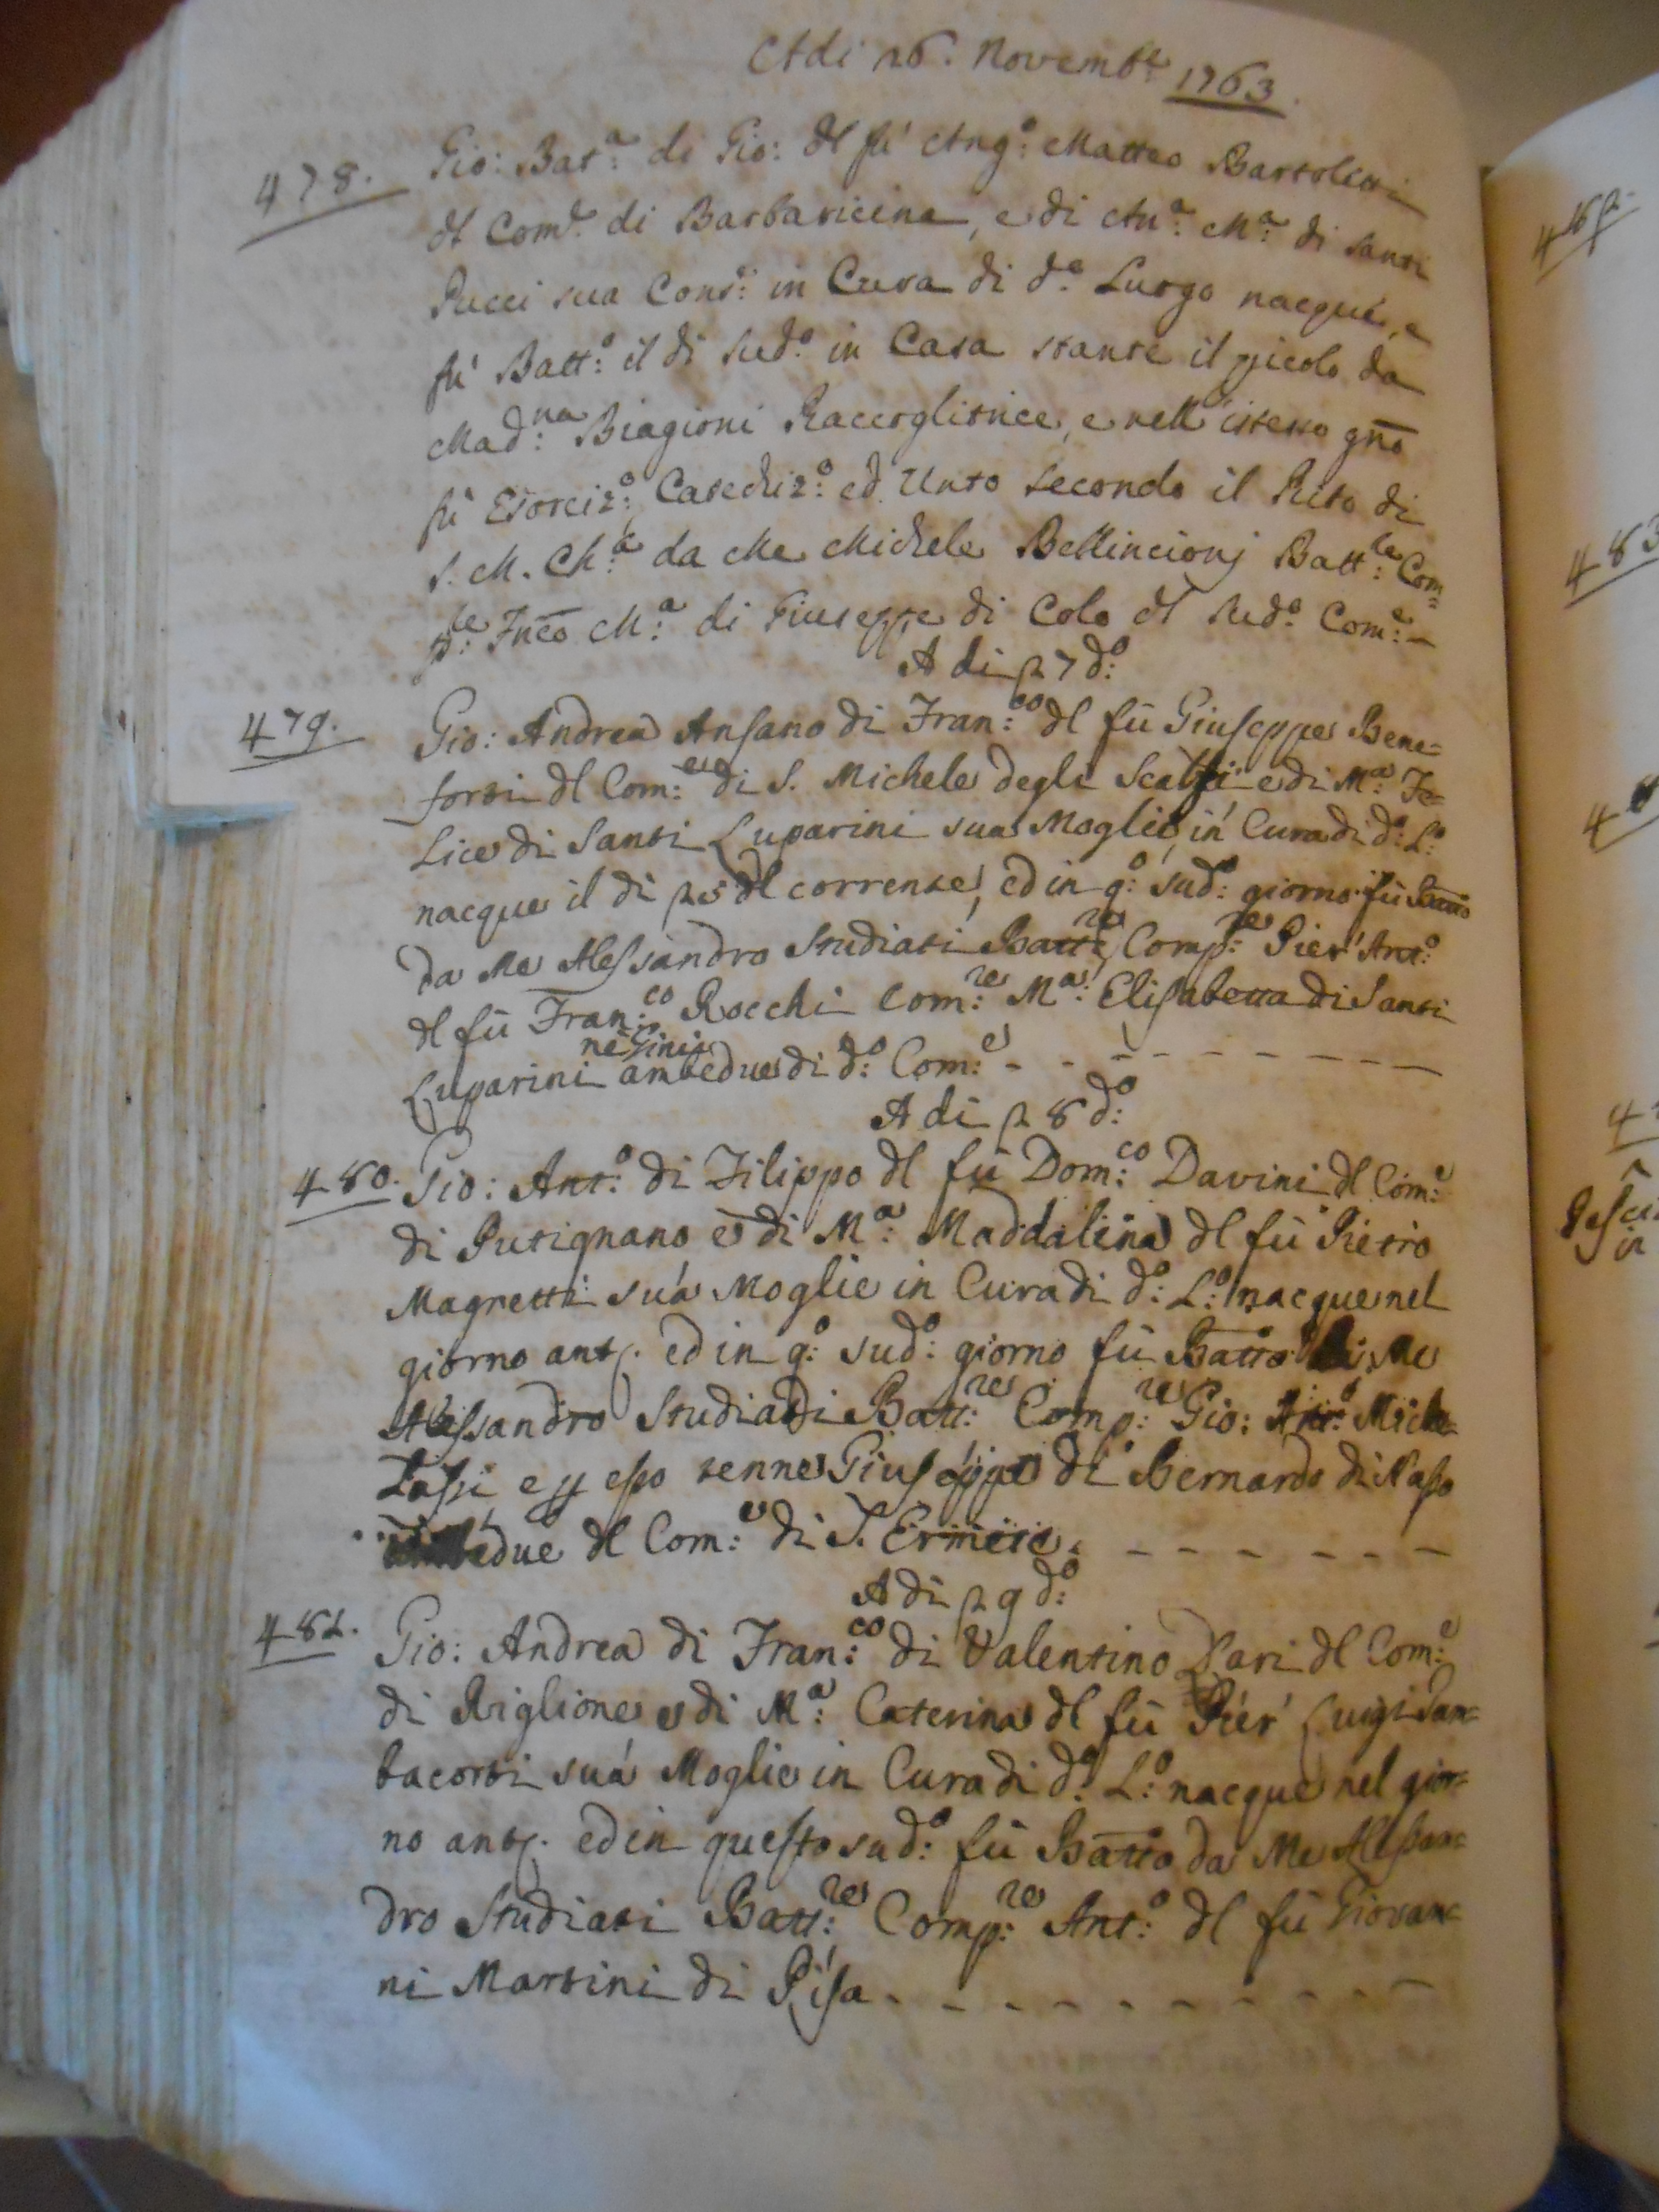 Adi 26. Novembre 1763.
478. Gio: Batt.a di Gio: dl fù Ang.o Matteo Bartoletti
dl Com.e di Barbaricina, e di An.a M.a di Santi
Pucci sua Cons.e in Cura di d.o Luogo nacque, e
fù Batt:o il di sud.o in Casa stante il picolo da
Mad:na Biagioni Raccoglitrice, e nell'istesso gno
fù Esorciz:o Catechiz:o ed Unto secondo il Rito di
S. M. Ch:a da Me Michele Bellincionj Batt:re Com=
p:re Fnco M:a di Giuseppe di Colo dl sud.o Com:e
A di 27 d:o
479. Gio: Andrea Ansano di Fran:co dl fù Giuseppe Bene=
forti dl Com:e di S. Michele degli Scalzi e di M:a Fe=
Lice di Santi Luparini sua Moglie, in Cura di d:o L:o
nacque il di 25 dl corrente, ed in q:o sud:o giorno fù Batto
da Me Alessandro Studiati Batt:re Comp:re Pier' Ant:o
dl fù Fran:co Rocchi Com:re M:a Elisabetta di Santi
Luparini ambedue di d:o Com:e
A di 28 d:o
480. Gio: Ant:o di Filippo dl fù Dom:co Davini dl Com:e
di Putignano e di M:a Maddalena dl fù Pietro
Magretti sua Moglie in Cura di d:o L:o nacque nel
giorno ant. ed in q:o sud:o giorno fù Batto Me
Alessandro Studiadi Batt:re Comp:re Gio: Ant:o Miche=
Lassi e p esso tenne Giuseppe di Bernardo di Naso
ambedue dl Com:e di S. Ermete.
A di 29 d:o
481. Gio: Andrea di Fran:co di Valentino Pari dl Com:e
di Riglione e di M:a Caterina dl fù Pier' Luigi Gam=
bacorti sua Moglie in Cura di d:o L:o nacque nel gior=
no ant. ed in questo sud:o fù Batto da Me Alessan=
dro Studiati Batt:re Comp:re Ant:o dl fù Giovan=
ni Martini di Pisa